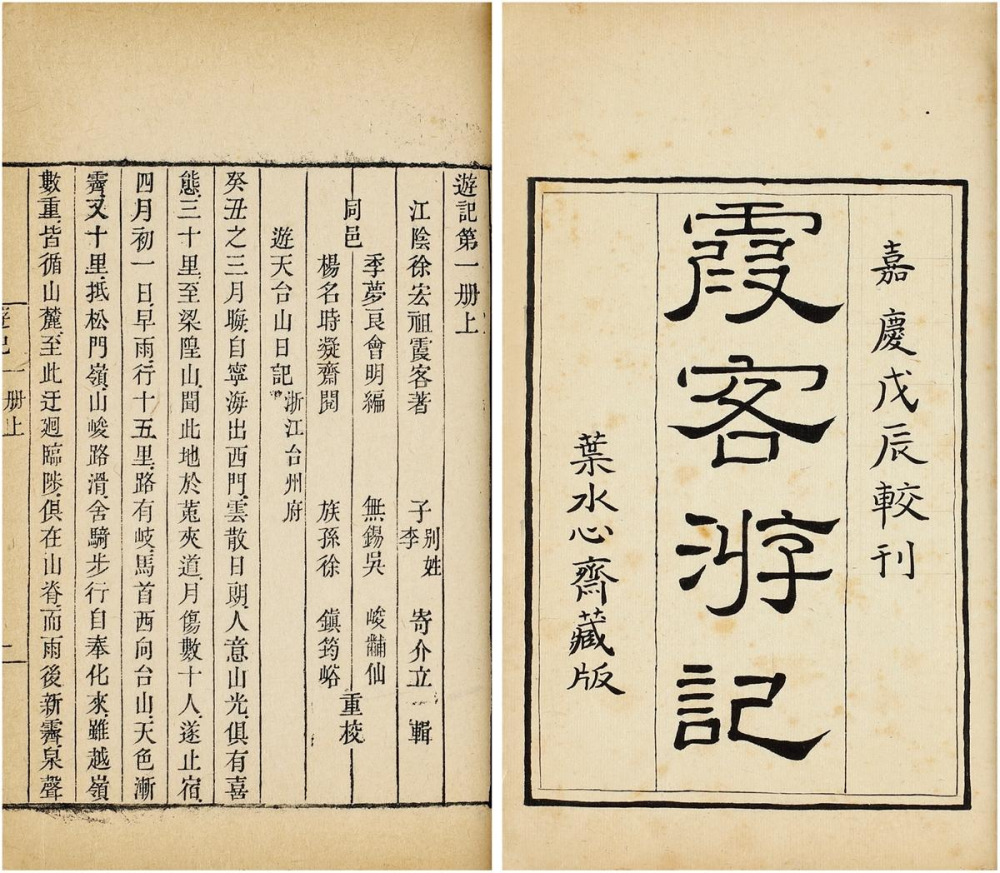 嘉慶戊辰較刊
霞客游記
葉水心齋藏版
遊記第一册上
江陰徐宏祖霞客著 子別姓李寄介立輯
同邑
季夢良會明編 無錫吳峻黼仙
楊名時凝齋閱 族孫徐鎮筠峪
重校
遊天台山日記 浙江台州府
癸丑之三月晦、自寧海出西門、雲散日朗、人意山光、俱有喜
態、三十里、至梁隍山、聞此地於菟夾道、月傷數十人、遂止宿、
四月初一日、早雨、行十五里、路有岐、馬首西向台山、天色漸
霽、又十里、抵松門嶺、山峻路滑、舍騎步行、自奉化來、雖越嶺
數重、皆循山麓、至此迂廻臨陟、俱在山脊、而雨後新霽、泉聲
遊記一册上